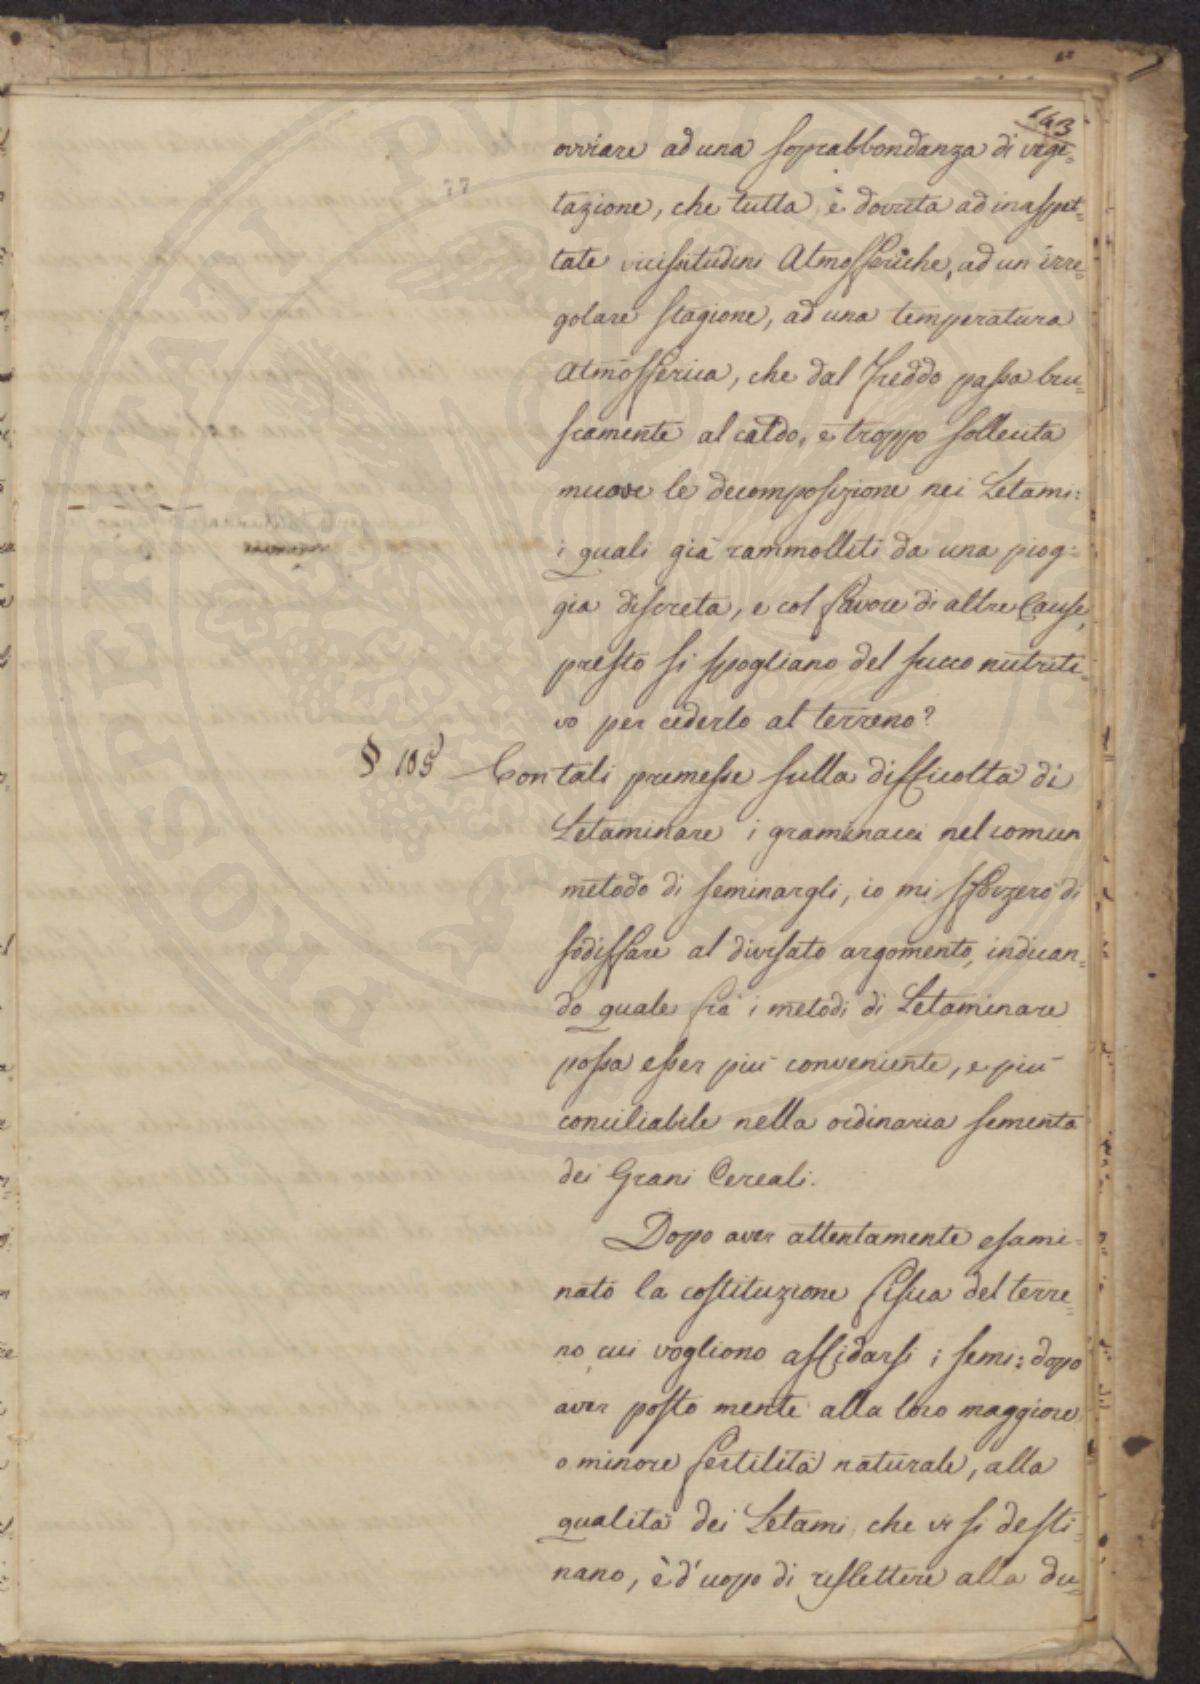 143
ovviare ad una soprabbondanza di vege=
tazione, che tutta è dovuta ad inaspet=
tate vicissitudini Atmosferiche, ad un irre=
golare stagione, ad una temperatura
Atmosferica, che dal freddo passa bru=
scamente al caldo, e troppo sollecita
muove le decomposizione nei Letami:
i quali già rammolliti da una piog=
gia discreta, e col favore di altre Cause,
presto si spogliano del succo nutriti=
vo per cederlo al terreno?
§ 105 Con tali premesse sulla difficoltà di
Letaminare i graminacei nel comun
metodo di seminargli, io mi sforzerò di
sodisfare al divisato argomento, indican=
do quale frà i metodi di Letaminare
possa esser più conveniente, e più
conciliabile nella ordinaria sementa
dei Grani Cereali.
Dopo aver attentamente esami=
nato la costituzione fisica del terre=
no cui vogliono affidarsi i semi: dopo
aver posto mente alla loro maggiore
o minore fertilità naturale, alla
qualità dei Letami che vi si desti=
nano, è d'uopo di reflettere alla du=
PROSPERITATI PUBLICAE